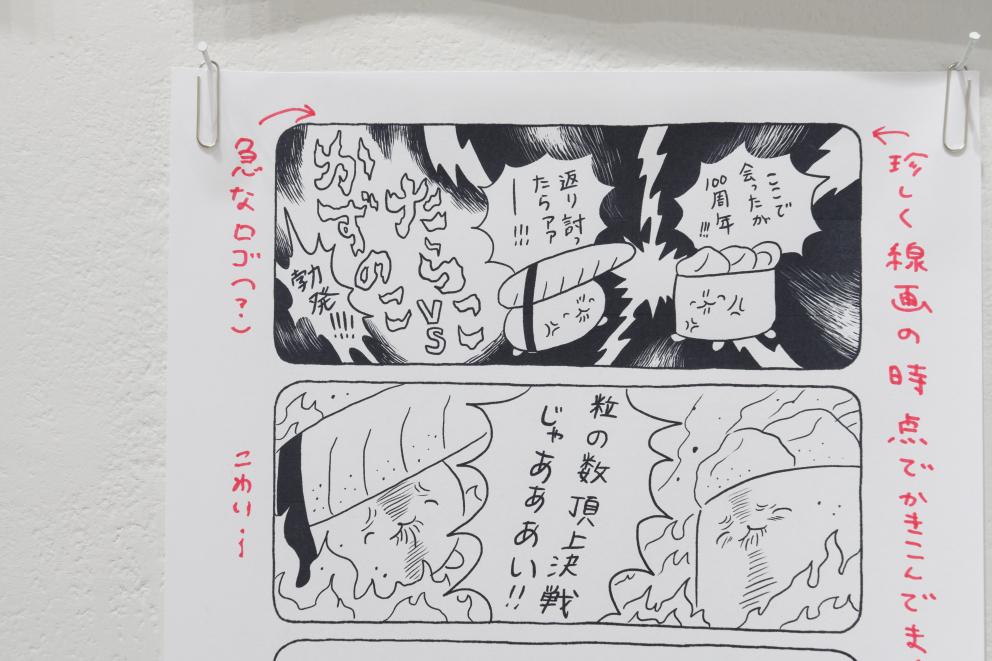 珍しく線画の時点でかきこんでま
急なロゴ(?)
ここで
会ったが
100周年
!!!
返り討っ
たらァァ
ー!!!
たらこ
VS
かずのこ
勃発
!!!!
粒の数頂上決戦
じゃあああい!!
こわい…